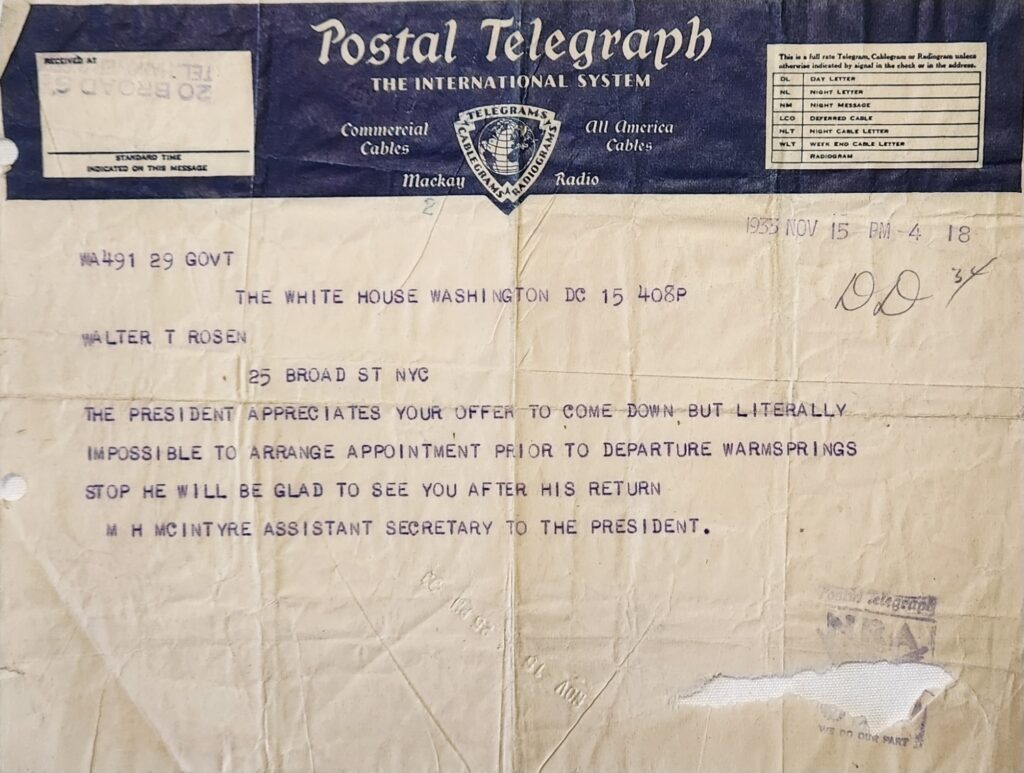 Postal Telegraph
THE INTERNATIONAL SYSTEM
Commercial Cables
All America Cables
TELEGRAMS
CABLEGRAMS
RADIOGRAMS
Mackay Radio
RECEIVED AT
20 BROAD
STANDARD TIME
INDICATED ON THIS MESSAGE
This is a full rate Telegram, Cablegram or Radiogram unless
otherwise indicated by signal in the check or in the address.
DL DAY LETTER
NL NIGHT LETTER
NM NIGHT MESSAGE
LCO DEFERRED CABLE
NLT NIGHT CABLE LETTER
WLT WEEK END CABLE LETTER
RADIOGRAM
2
1933 NOV 15 PM 4 18
WA491 29 GOVT
DD 34
THE WHITE HOUSE WASHINGTON DC 15 408P
WALTER T ROSEN
25 BROAD ST NYC
THE PRESIDENT APPRECIATES YOUR OFFER TO COME DOWN BUT LITERALLY
IMPOSSIBLE TO ARRANGE APPOINTMENT PRIOR TO DEPARTURE WARMSPRINGS
STOP HE WILL BE GLAD TO SEE YOU AFTER HIS RETURN
M H MCINTYRE ASSISTANT SECRETARY TO THE PRESIDENT.
Postal Telegraph
NRA
NOV
WE DO OUR PART